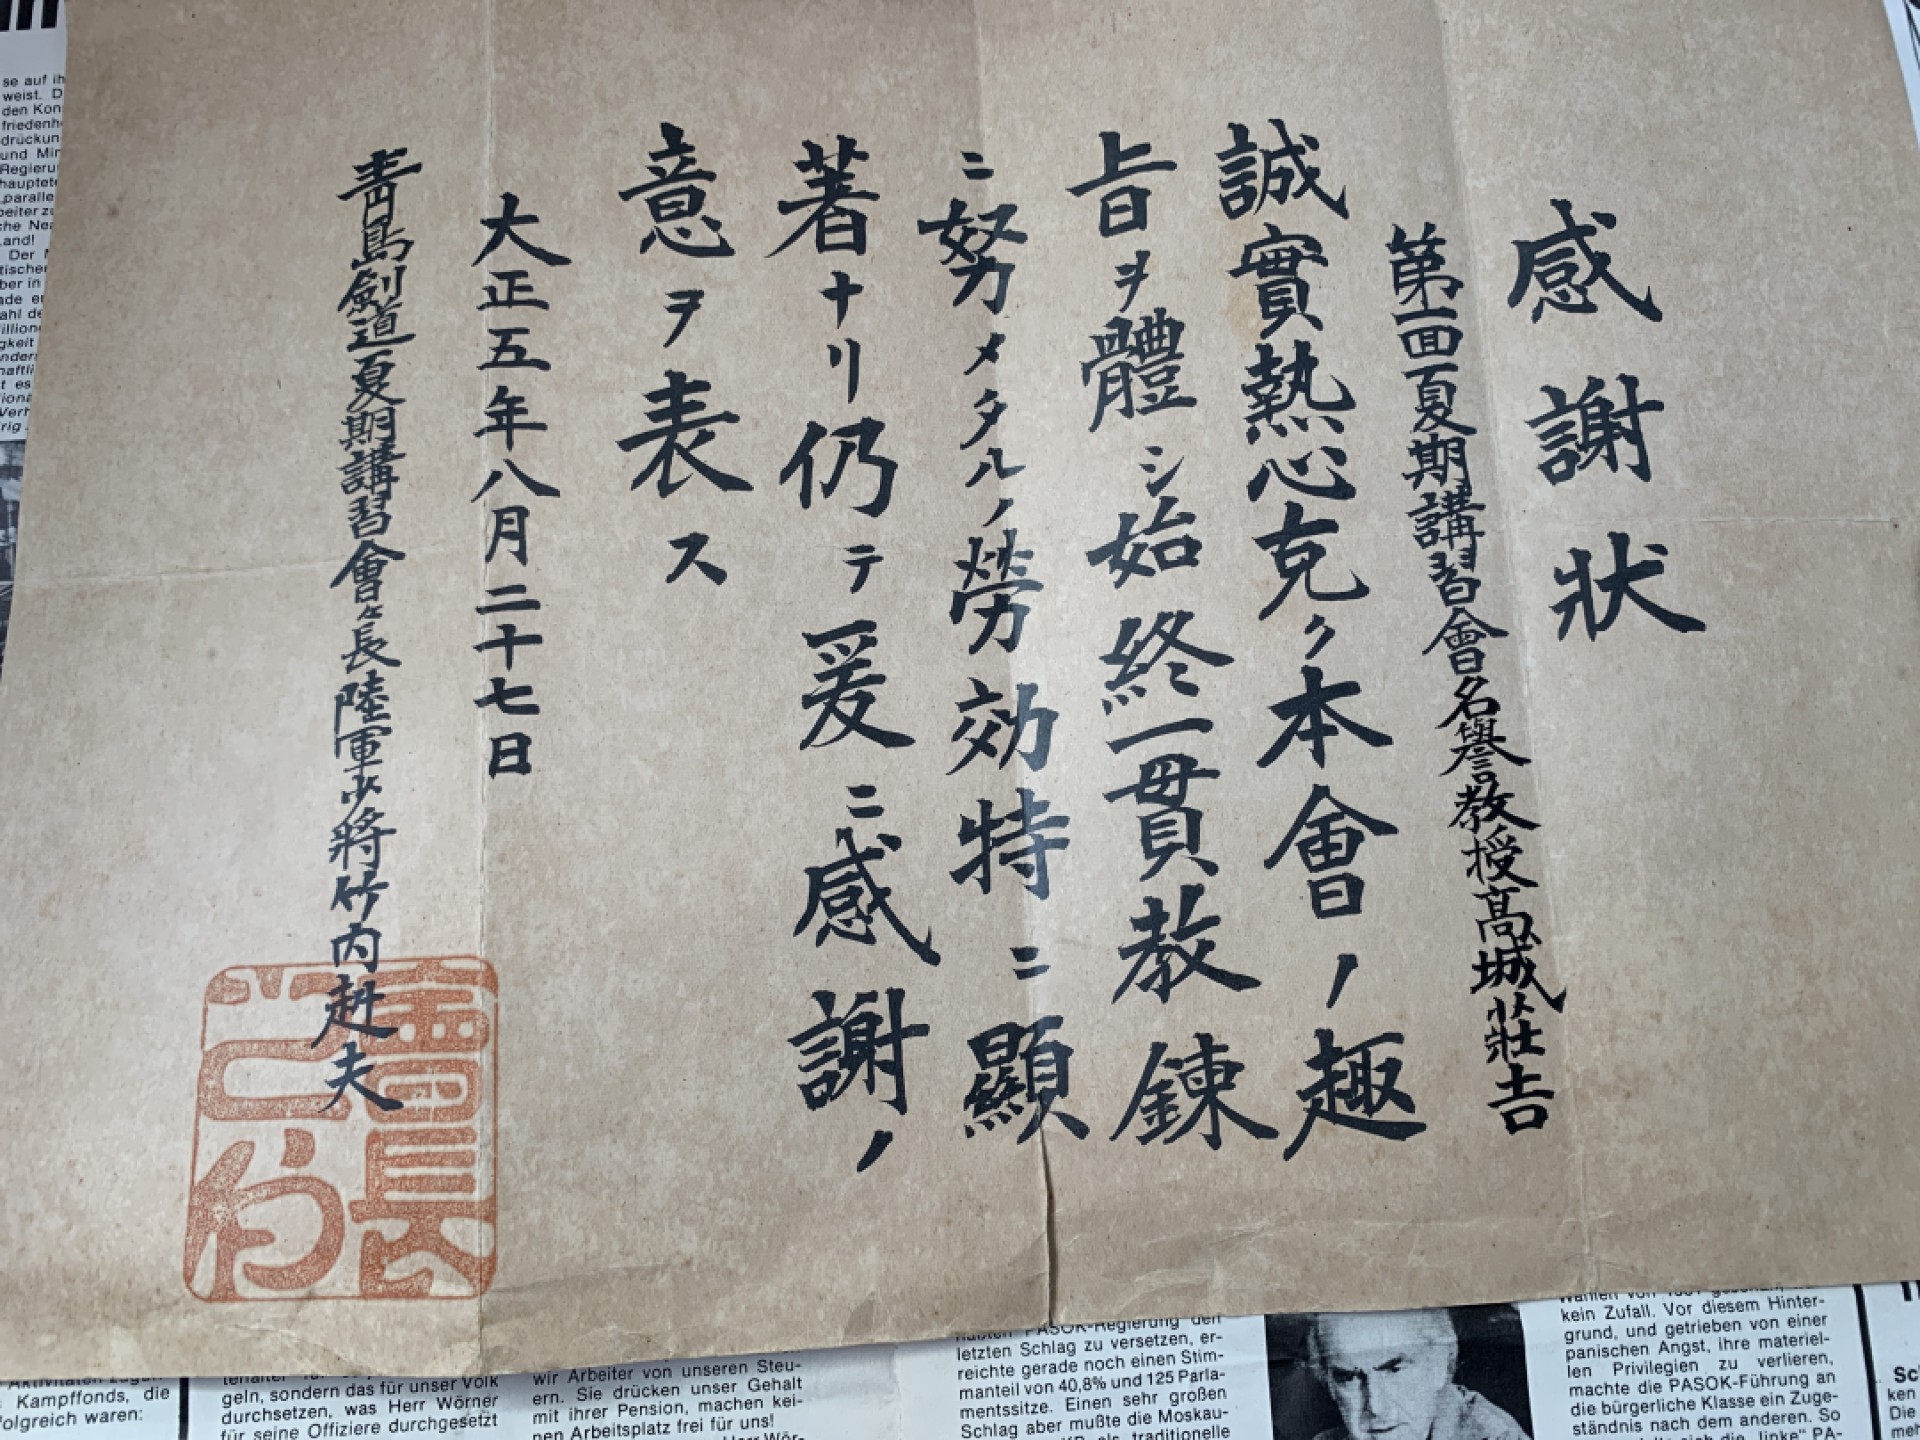 感謝狀
第一回夏期講習會名譽教授高城莊吉
誠實熱心克ク本會ノ趣
旨ヲ體シ始終一貫教鍊
ニ努メタルノ勞効特ニ顯
著ナリ仍テ爰ニ感謝ノ
意ヲ表ス
大正五年八月二十七日
青島劍道夏期講習會々長陸軍少將竹内赳夫
會長之印
se auf ih
weist. D
den Kon
friedenh
drückun
und Min
Regieru
hauptete
parallel
beiter zu
che Nea
Land!
Der
tischer
ber in
ade er
ahl de
illion
gkeit
nders
haftli
t es
iona
Verh
rig.
Kampffonds, die
folgreich waren:
geln, sondern das für unser Volk
durchsetzen, was Herr Wörner
für seine Offiziere durchgesetzt
wir Arbeiter von unseren Steu-
ern. Sie drücken unser Gehalt
mit ihrer Pension, machen kei-
nen Arbeitsplatz frei für uns!
PASOK-Regierung den
letzten Schlag zu versetzen, er-
reichte gerade noch einen Stim-
manteil von 40,8% und 125 Parla-
mentssitze. Einen sehr großen
Schlag aber mußte die Moskau-
als traditionelle
kein Zufall. Vor diesem Hinter-
grund, und getrieben von einer
panischen Angst, ihre materiel-
len Privilegien zu verlieren,
machte die PASOK-Führung an
die bürgerliche Klasse ein Zuge-
ständnis nach dem anderen. So
sich die "linke" PA-
Sc
ken
Die
meh